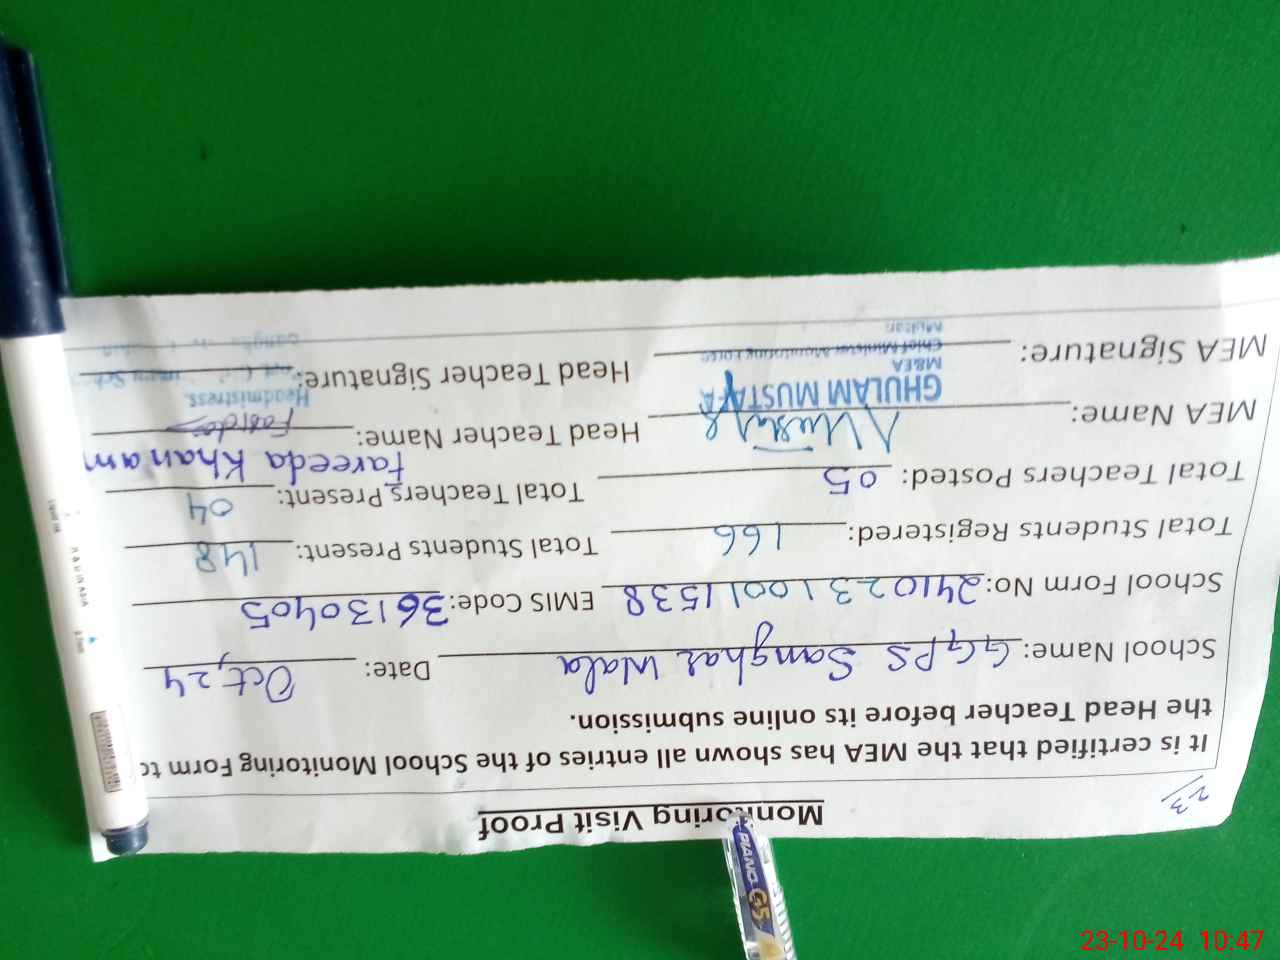 Monitoring Visit Proof
23
It is certified that the MEA has shown all entries of the School Monitoring Form to
the Head Teacher before its online submission.
School Name: GGPS Sanghar Wala Date: Oct, 24
School Form No: 24102310011538 EMIS Code: 36130405
Total Students Registered: 166 Total Students Present: 148
Total Teachers Posted: 05 Total Teachers Present: 04
Fareeda Khanam
MEA Name: Head Teacher Name:
GHULAM MUSTAFA
M&EA
Chief Minister Monitoring Force
Multan
Headmistress
MEA Signature: Head Teacher Signature:
PIANO G5
23-10-24 10:47